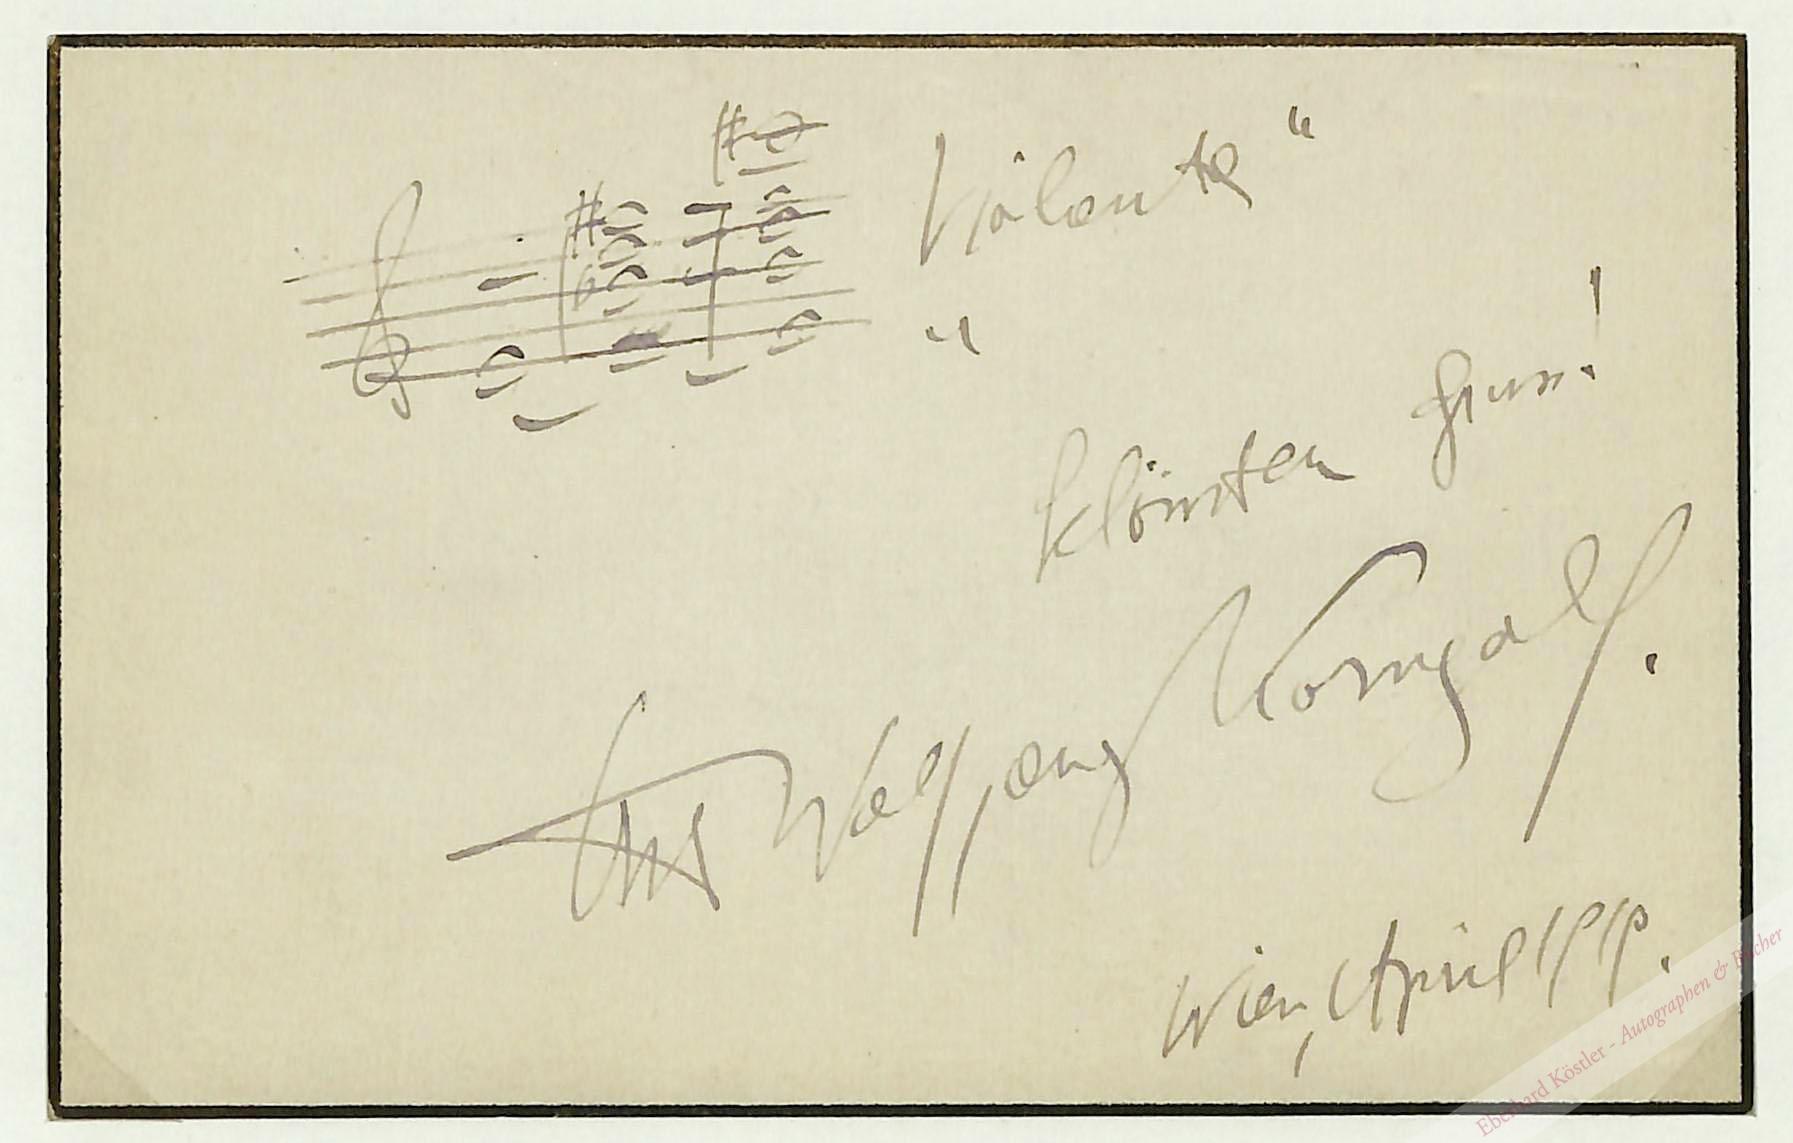 „Violanta“
Schönsten Gruss!
Erich Wolfgang Korngold.
Wien, April 1919.
Eberhard Köstler - Autographen & Bücher